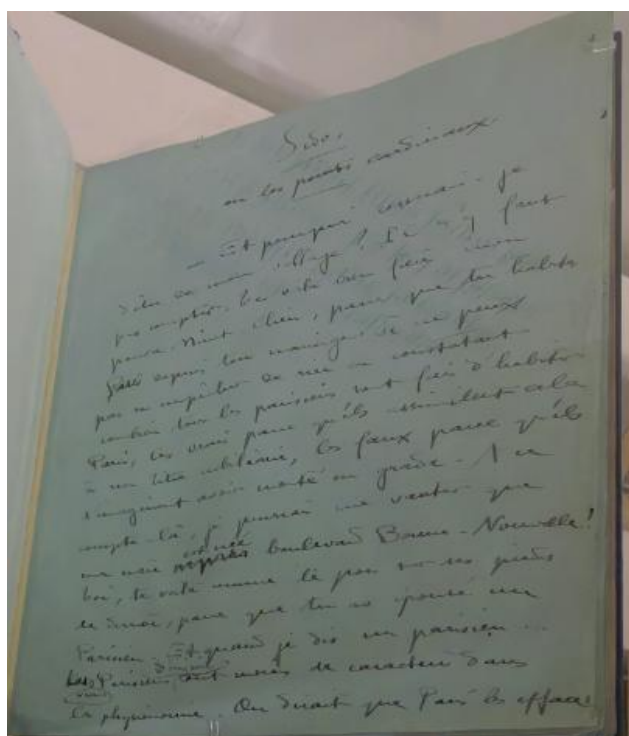 Sido.
ou les points cardinaux.
— Et pourquoi cesserais-je
d'être de mon village? Il n'y faut
pas compter. Te voilà bien fière, mon
pauvre Minet-Chéri, parce que tu habites
Paris depuis ton mariage. Je ne peux
pas m'empêcher de rire en constatant
combien tous les parisiens sont fiers d'habiter
Paris, les vrais parce qu'ils assimilent cela
à un titre nobiliaire, les faux parce qu'ils
s'imaginent avoir monté en grade. A ce
compte-là, je pourrais me vanter que
ma mère est née boulevard Bonne-Nouvelle!
Toi, te voilà comme le pou sur ses pieds
de derrière, parce que tu as épousé un
Parisien. Et quand je dis un parisien...
Les vrais Parisiens ont moins de caractère dans
la physionomie. On dirait que Paris les efface!